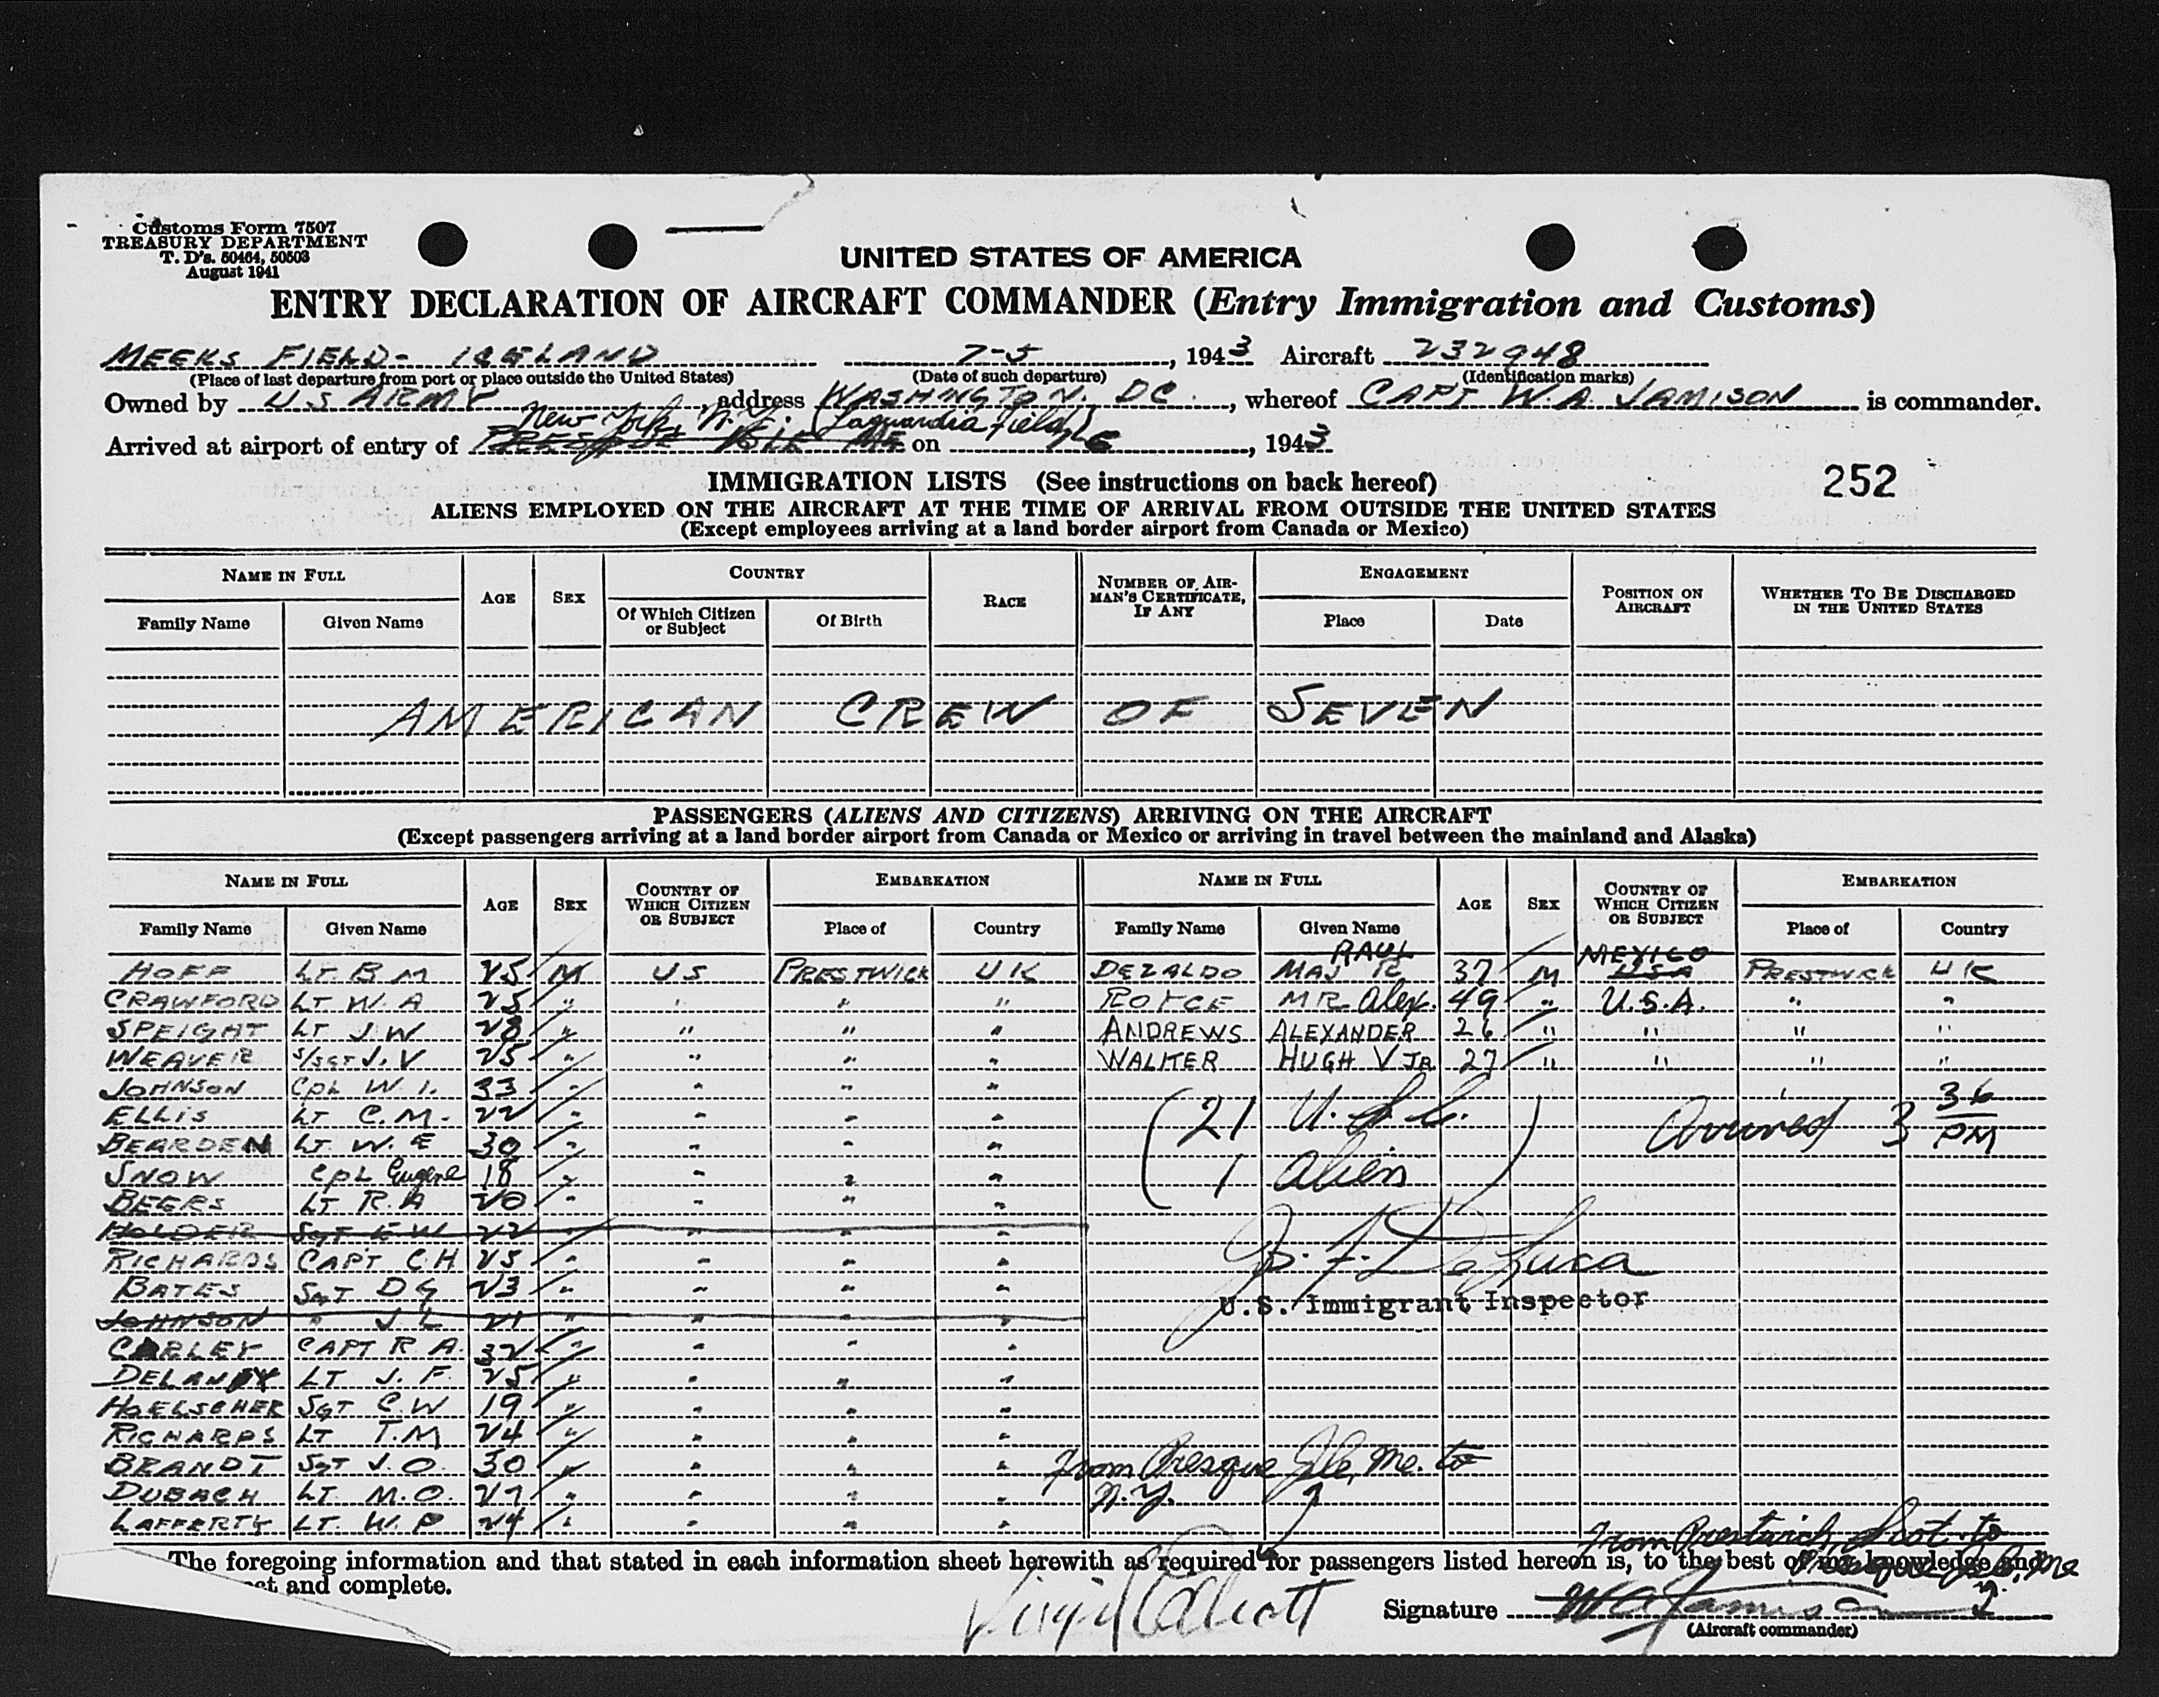 Customs Form 7507
TREASURY DEPARTMENT
T. D's. 50464, 50503
August 1941
UNITED STATES OF AMERICA
ENTRY DECLARATION OF AIRCRAFT COMMANDER (Entry Immigration and Customs)
MEEKS FIELD - ICELAND 7-5, 1943 Aircraft 232948
(Place of last departure from port or place outside the United States) (Date of such departure) (Identification marks)
Owned by US ARMY address WASHINGTON. DC., whereof CAPT W.A JAMISON is commander.
New York, N.Y. (Laguardia Field)
Arrived at airport of entry of PRESQUE ISLE ME on 7-6, 1943
252
IMMIGRATION LISTS (See instructions on back hereof)
ALIENS EMPLOYED ON THE AIRCRAFT AT THE TIME OF ARRIVAL FROM OUTSIDE THE UNITED STATES
(Except employees arriving at a land border airport from Canada or Mexico)
NAME IN FULL AGE SEX COUNTRY RACE NUMBER OF AIRMAN'S CERTIFICATE, IF ANY ENGAGEMENT POSITION ON AIRCRAFT WHETHER TO BE DISCHARGED IN THE UNITED STATES
Family Name Given Name Of Which Citizen or Subject Of Birth Place Date
AMERICAN CREW OF SEVEN
PASSENGERS (ALIENS AND CITIZENS) ARRIVING ON THE AIRCRAFT
(Except passengers arriving at a land border airport from Canada or Mexico or arriving in travel between the mainland and Alaska)
NAME IN FULL AGE SEX COUNTRY OF WHICH CITIZEN OR SUBJECT EMBARKATION NAME IN FULL AGE SEX COUNTRY OF WHICH CITIZEN OR SUBJECT EMBARKATION
Family Name Given Name Place of Country Family Name Given Name Place of Country
RAUL MEXICO
HOFF LT. B M 25 M US PRESTWICK UK DEZALDO MAJ R 37 M USA PRESTWICK UK
CRAWFORD LT W. A 25 " " " " ROYCE MR Alex. 49 " U.S.A. " "
SPEIGHT LT J. W 28 " " " " ANDREWS ALEXANDER 26 " " " "
WEAVER S/SGT J. V 25 " " " " WALKER HUGH V JR 27 " " " "
JOHNSON CPL W. I. 33 " " " "
ELLIS LT C. M. 22 " " " " (21 U.S.C.) Arrived 3 36 PM
BEARDEN LT. W. E 30 " " " "
SNOW CPL Eugene 18 " " " " (1 alien)
BEERS LT R. A 20 " " " "
HOLDER SGT E W 22 " " " "
RICHARDS CAPT C. H 25 " " " " Jos. F. DeLuca
BATES SGT D G 23 " " " "
U.S. Immigrant Inspector
JOHNSON " J L 21 " " " "
CARLEY CAPT R A. 32 " " " "
DELANEY LT J. F. 25 " " " "
HOELSCHER SGT C. W 19 " " " "
RICHARDS LT T. M 24 " " " "
BRANDT SGT J. O. 30 " " " " From Presque Isle, Me. to
DUBACH LT. M. O. 27 " " " " N.Y.
LAFFERTY LT. W. P 24 " " " "
From Prestwick, Scot. to
Presque Isle, Me
The foregoing information and that stated in each information sheet herewith as required for passengers listed hereon is, to the best of my knowledge and
and complete.
Signature W A Jamison
(Aircraft commander)